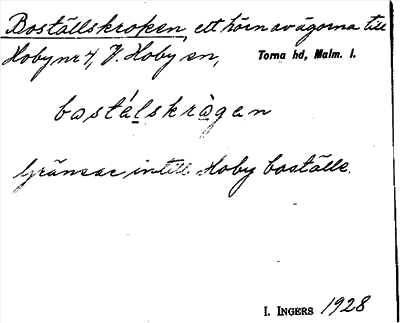 Boställskroken, ett hörn av ägorna till
Hoby nr 4, V. Hoby sn, Torna hd, Malm. l.
bostálskrågan
Gränsar intill Hoby boställe.
I. INGERS 1928